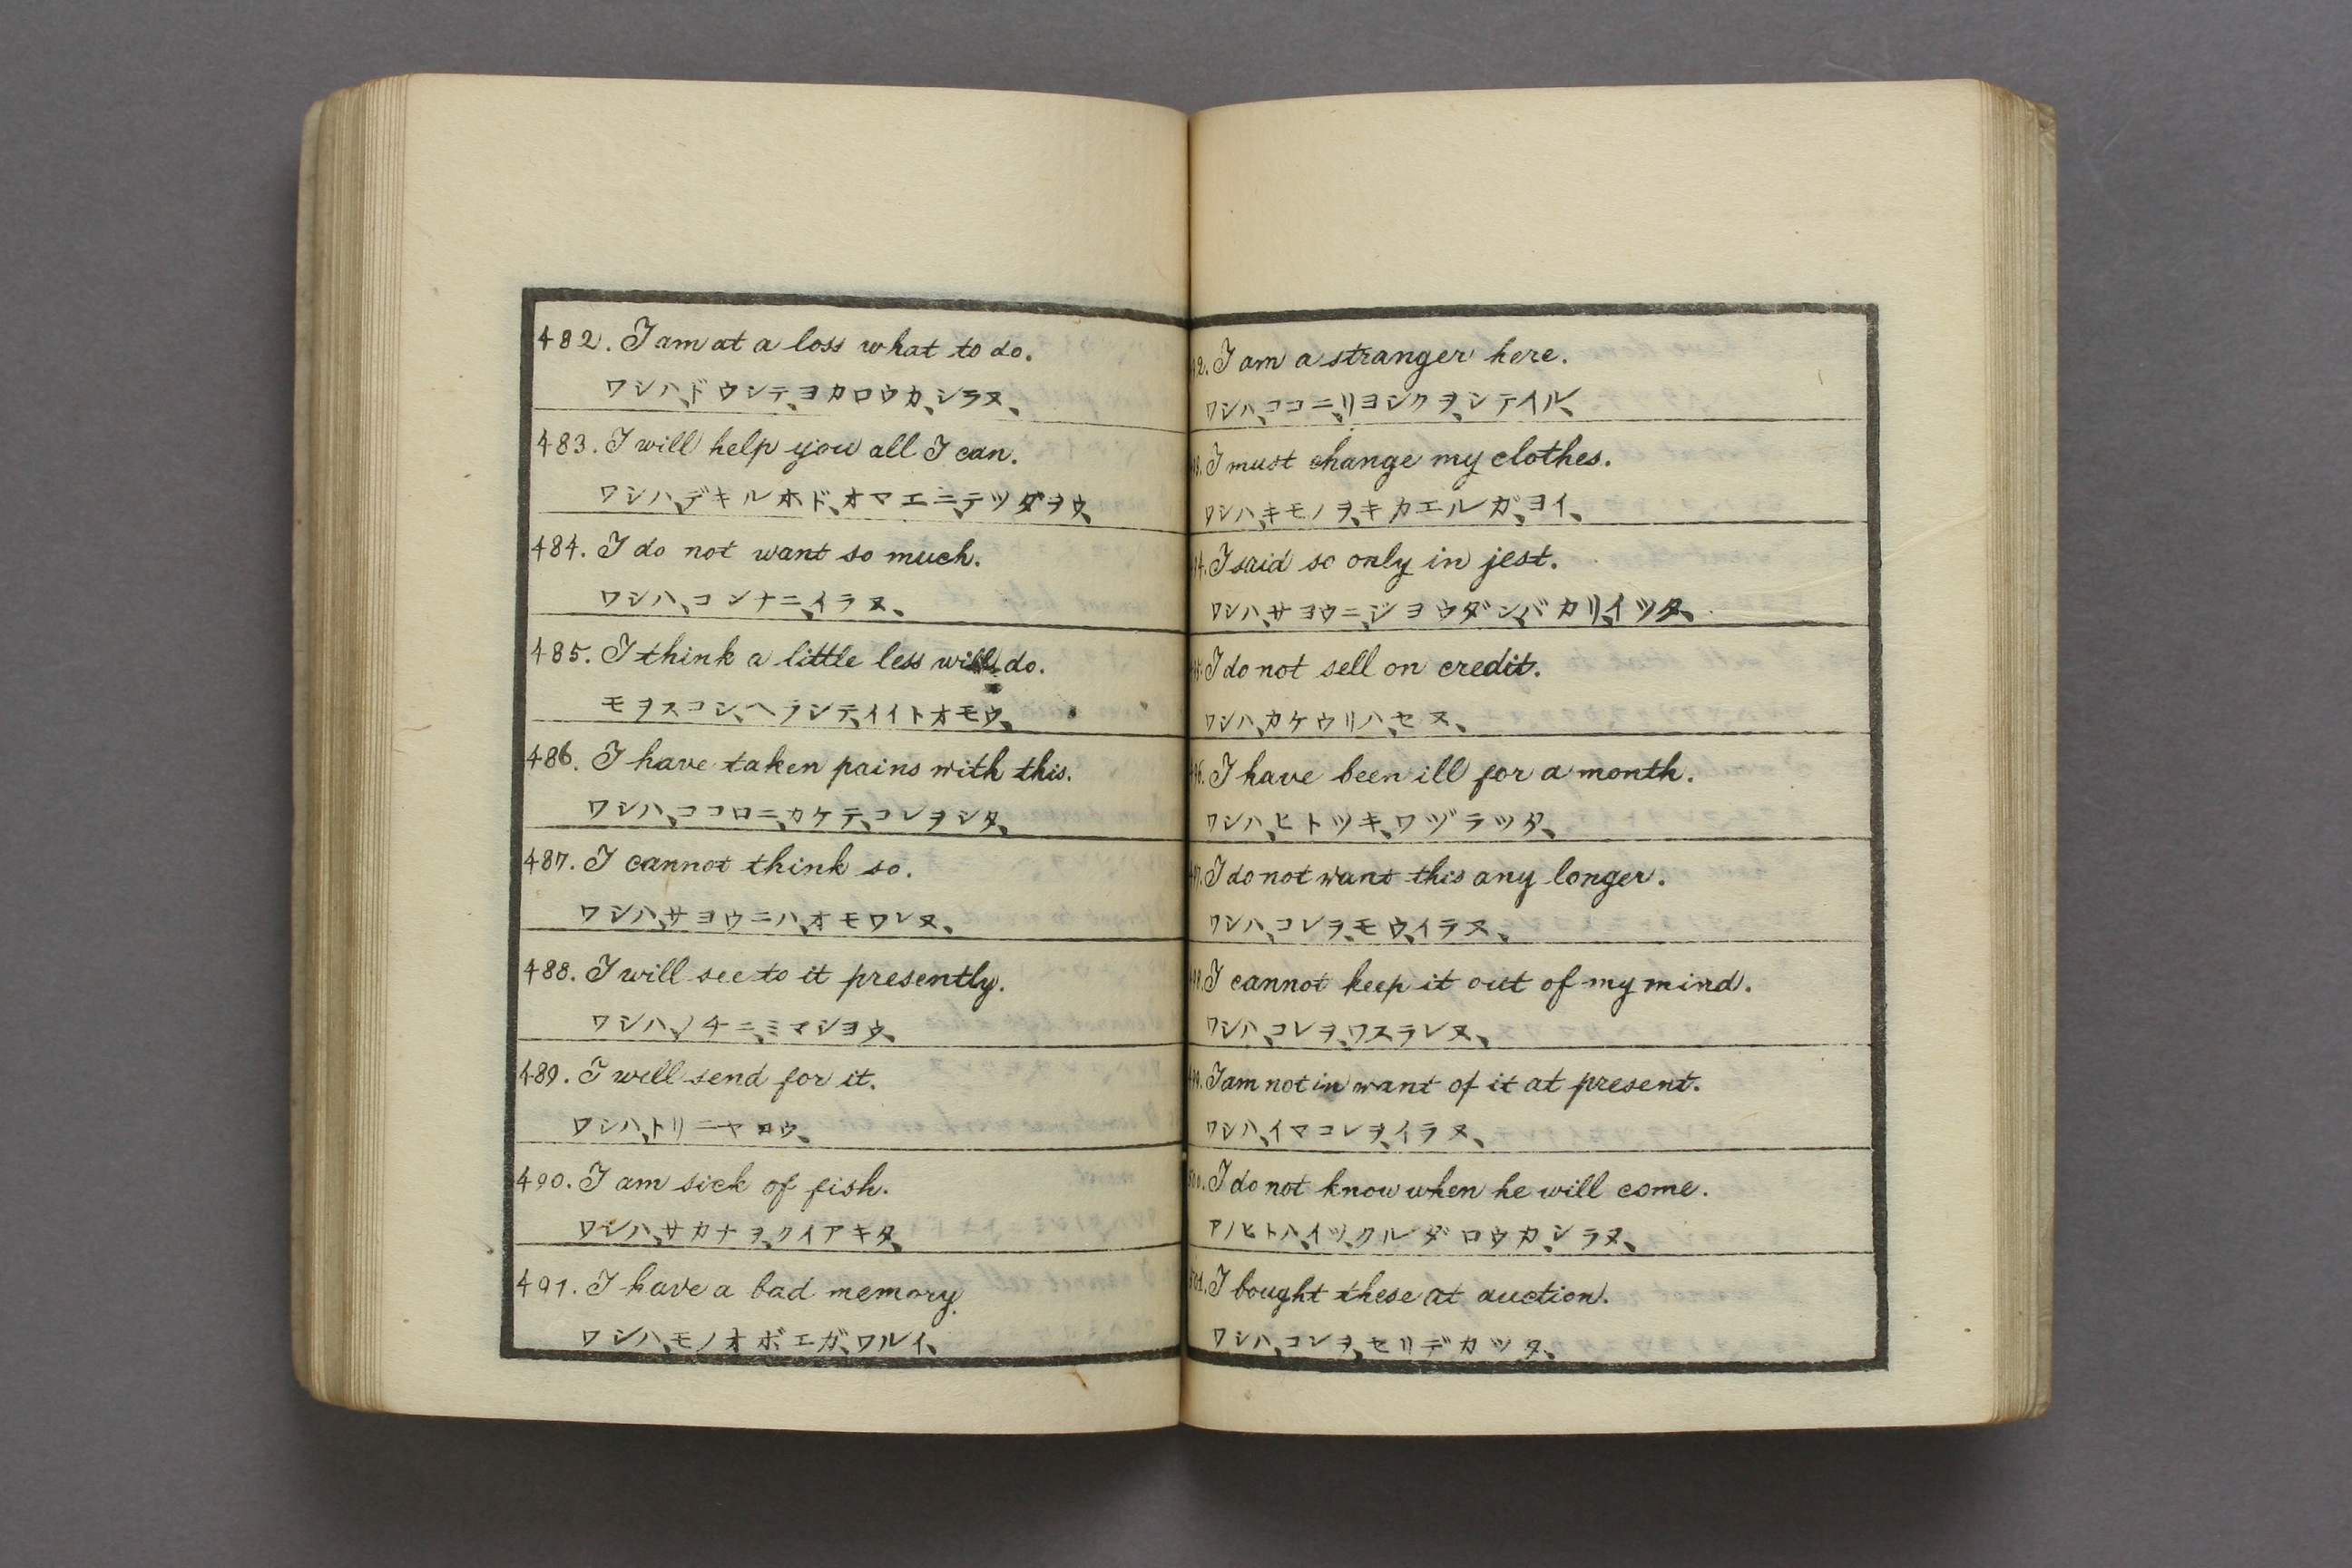 482. I am at a loss what to do.
ワシハ、ドウシテ、ヨカロウカ、シラヌ、
483. I will help you all I can.
ワシハ、デキルホド、オマエニ、テツダヲウ、
484. I do not want so much.
ワシハ、コンナニ、イラヌ、
485. I think a little less will do.
モヲスコシ、ヘラシテ、イイトオモウ、
486. I have taken pains with this.
ワシハ、ココロニ、カケテ、コレヲシタ、
487. I cannot think so.
ワシハ、サヨウニハ、オモワレヌ、
488. I will see to it presently.
ワシハ、ノチニ、ミマシヨウ、
489. I will send for it.
ワシハ、トリニヤロウ、
490. I am sick of fish.
ワシハ、サカナヲ、クイアキタ、
491. I have a bad memory.
ワシハ、モノオボエガ、ワルイ、
92. I am a stranger here.
ワシハ、ココニ、リヨシクヲ、シテイル、
I must change my clothes.
ワシハ、キモノヲ、キカエルガ、ヨイ、
4. I said so only in jest.
ワシハ、サヨウニ、ジヨウダン、バカリ、イツタ、
I do not sell on credit.
ワシハ、カケウリハ、セヌ、
96. I have been ill for a month.
ワシハ、ヒトツキ、ワヅラツタ、
I do not want this any longer.
ワシハ、コレヲ、モウ、イラヌ、
I cannot keep it out of my mind.
ワシハ、コレヲ、ワスラレヌ、
I am not in want of it at present.
ワシハ、イマコレヲ、イラヌ、
500. I do not know when he will come.
アノヒトハ、イツ、クルダロウカ、シラヌ、
501. I bought these at auction.
ワシハ、コレヲ、セリデカツタ、